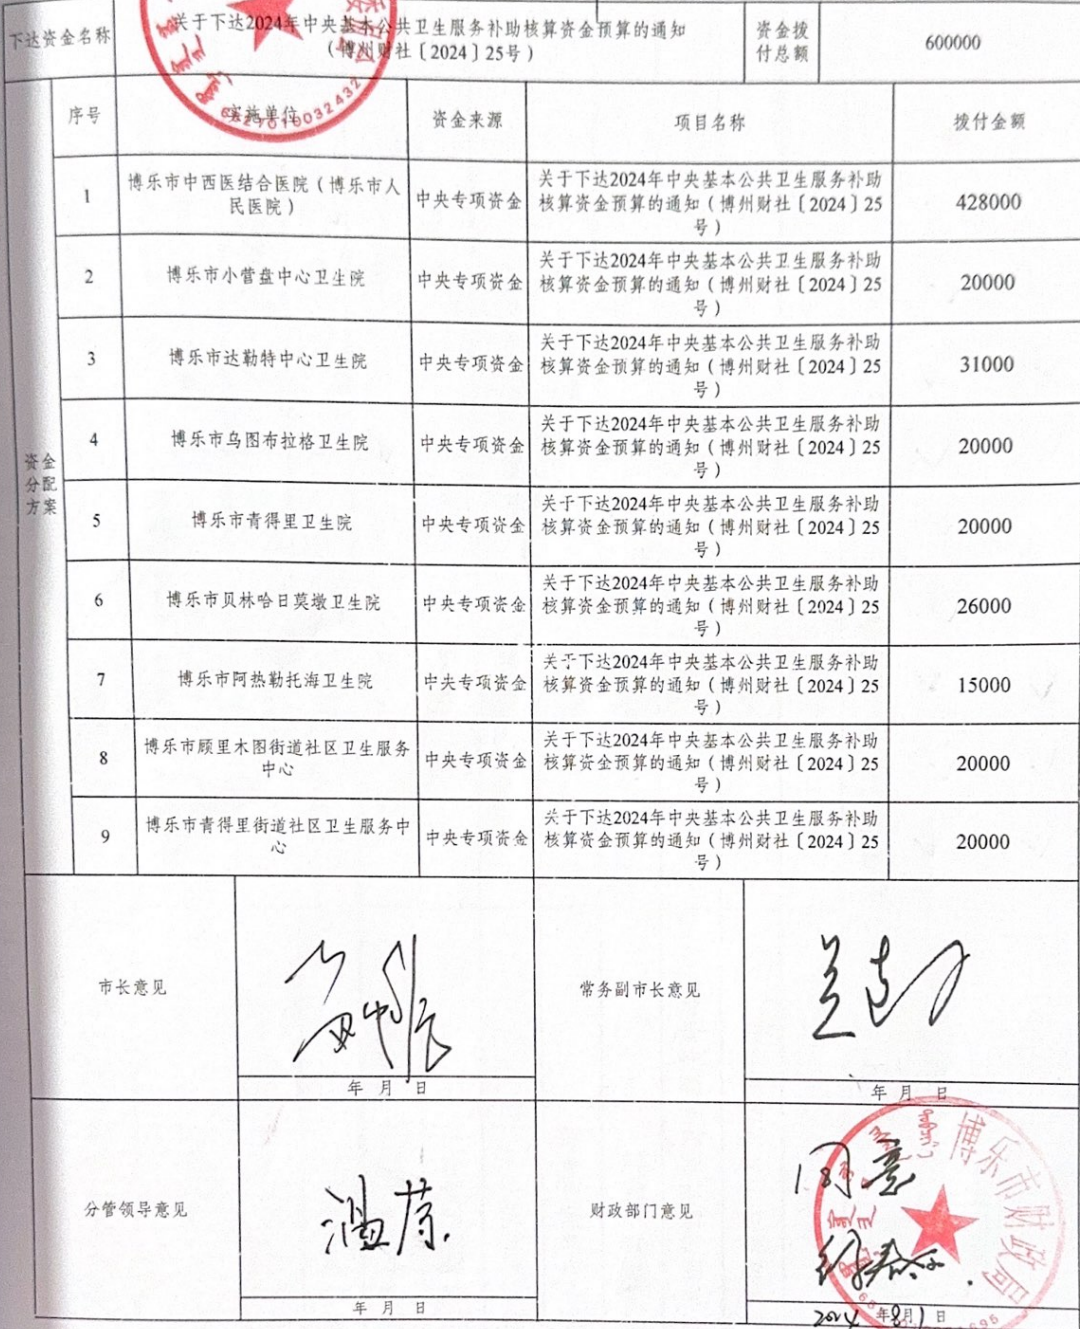 下达资金名称
关于下达2024年中央基本公共卫生服务补助核算资金预算的通知
(博州财社〔2024〕25号)
资金拨
付总额
600000
序号
实施单位
资金来源
项目名称
拨付金额
资金
分配
方案
1
博乐市中西医结合医院(博乐市人
民医院)
中央专项资金
关于下达2024年中央基本公共卫生服务补助
核算资金预算的通知(博州财社〔2024〕25
号)
428000
2
博乐市小营盘中心卫生院
中央专项资金
关于下达2024年中央基本公共卫生服务补助
核算资金预算的通知(博州财社〔2024〕25
号)
20000
3
博乐市达勒特中心卫生院
中央专项资金
关于下达2024年中央基本公共卫生服务补助
核算资金预算的通知(博州财社〔2024〕25
号)
31000
4
博乐市乌图布拉格卫生院
中央专项资金
关于下达2024年中央基本公共卫生服务补助
核算资金预算的通知(博州财社〔2024〕25
号)
20000
5
博乐市青得里卫生院
中央专项资金
关于下达2024年中央基本公共卫生服务补助
核算资金预算的通知(博州财社〔2024〕25
号)
20000
6
博乐市贝林哈日莫墩卫生院
中央专项资金
关于下达2024年中央基本公共卫生服务补助
核算资金预算的通知(博州财社〔2024〕25
号)
26000
7
博乐市阿热勒托海卫生院
中央专项资金
关于下达2024年中央基本公共卫生服务补助
核算资金预算的通知(博州财社〔2024〕25
号)
15000
8
博乐市顾里木图街道社区卫生服务
中心
中央专项资金
关于下达2024年中央基本公共卫生服务补助
核算资金预算的通知(博州财社〔2024〕25
号)
20000
9
博乐市青得里街道社区卫生服务中
心
中央专项资金
关于下达2024年中央基本公共卫生服务补助
核算资金预算的通知(博州财社〔2024〕25
号)
20000
市长意见
年 月 日
常务副市长意见
年 月 日
分管领导意见
年 月 日
财政部门意见
同意
博乐市财政局
2024年8月1日